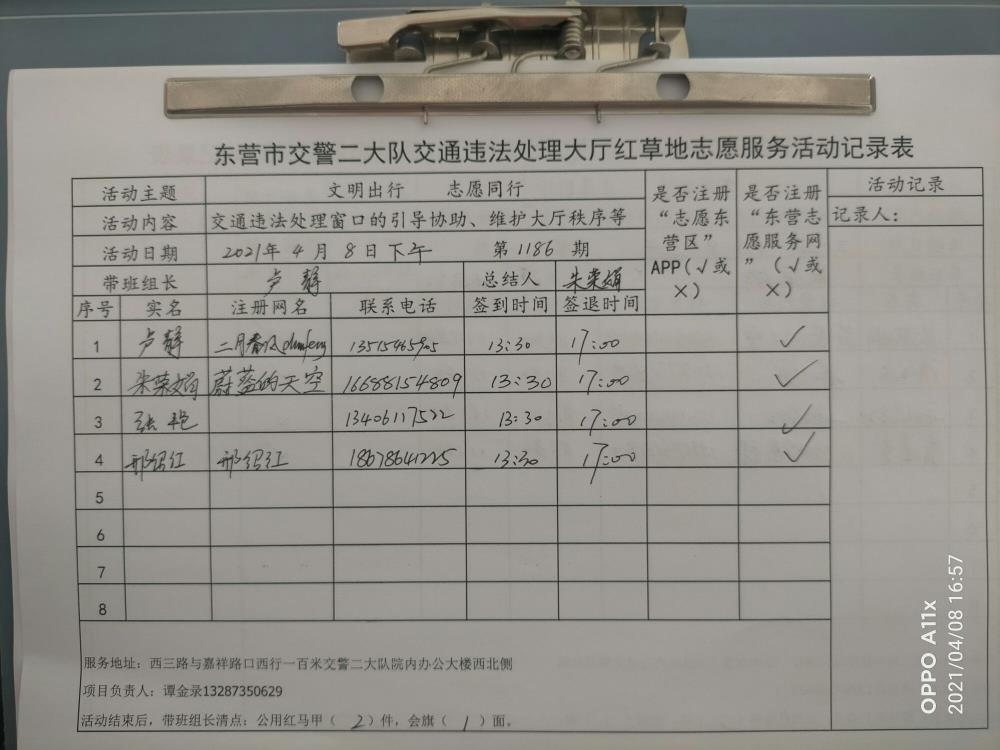 东营市交警二大队交通违法处理大厅红草地志愿服务活动记录表
活动主题 文明出行 志愿同行 是否注册“志愿东营区”APP(√或×) 是否注册“东营志愿服务网”(√或×) 活动记录
活动内容 交通违法处理窗口的引导协助、维护大厅秩序等 记录人:
活动日期 2021年4月8日下午 第1186期
带班组长 卢静 总结人 朱荣娟
序号 实名 注册网名 联系电话 签到时间 签退时间
1 卢静 二月春风 13515465905 13:30 17:00 ✓
2 朱荣娟 蔚蓝的天空 16688154809 13:30 17:00 ✓
3 张艳 13406117522 13:30 17:00 ✓
4 邢绍红 邢绍红 18678641225 13:30 17:00 ✓
5
6
7
8
服务地址:西三路与嘉祥路口西行一百米交警二大队院内办公大楼西北侧
项目负责人:谭金录13287350629
活动结束后,带班组长清点:公用红马甲(2)件,会旗(1)面。
OPPO A11x
2021/04/08 16:57